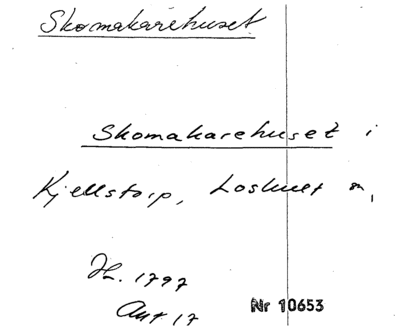 Skomakarehuset
Skomakarehuset i
Kjellstorp, Loshult sn,
Hl. 1797
Ant 17
Nr 10653